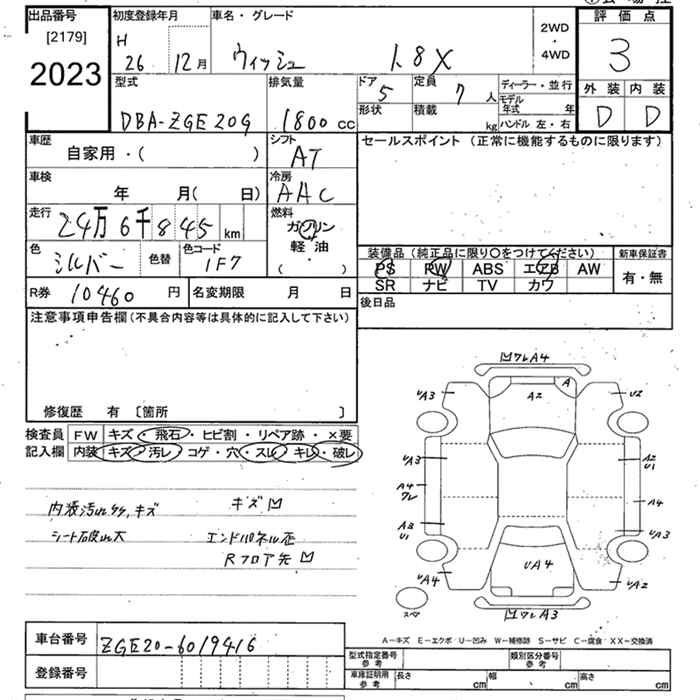 出品番号
[2179]
2023
初度登録年月
H 26 12月
車名・グレード
ウィッシュ 1.8X
2WD
・
4WD
評価点
3
外装 内装
D D
型式
DBA-ZGE20G
排気量
1800 cc
ドア
5
定員
7 人
形状
積載
kg
ディーラー・並行
モデル
年式 年
ハンドル 左・右
車歴
自家用・( )
シフト
AT
セールスポイント (正常に機能するものに限ります)
車検
年 月( 日)
冷房
AAC
走行
24万6千845 km
燃料
ガソリン
軽・油
( )
色
シルバー
色替
色コード
1F7
装備品 (純正品に限り〇をつけてください)
新車保証書
PS PW ABS エアB AW
有・無
SR ナビ TV カワ
R券 10460 円
名変期限 月 日
後日品
注意事項申告欄(不具合内容等は具体的に記入して下さい)
修復歴 有 〔箇所 〕
検査員
記入欄
FW キズ・飛石・ヒビ割・リペア跡・×要
内装 キズ・汚レ・コゲ・穴・スレ・キレ・破レ
内装汚れ スレ、キズ
シート破れ大
キズ
エンドパネル歪
Rフロア先
ワレA4
UA3
A2
A
U2
UA3
A2
U1
A4
ワレ
A4
A3
U1
UA3
UA4
UA4
UA2
スペア
ワレA3
A-キズ E-エクボ U-凹み W-補修跡 S-サビ C-腐食 XX-交換済
車台番号
ZGE20-6019416
登録番号
型式指定番号
参考
類別区分番号
参考
車庫証明用
参考
長さ cm
幅 cm
高さ cm